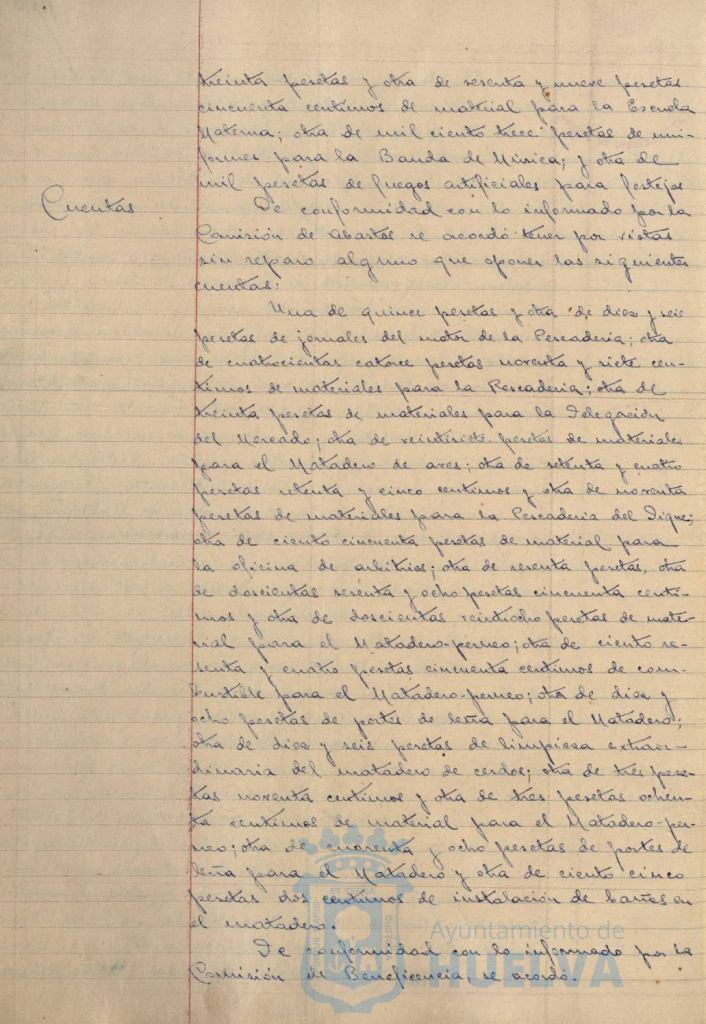 treinta pesetas y otra de sesenta y nueve pesetas
cincuenta centimos de material para la Escuela
Materna; otra de mil ciento trece pesetas de uni-
formes para la Banda de Música; y otra de
mil pesetas de fuegos artificiales para festejos
Cuentas
De conformidad con lo informado por la
Comisión de Abastos se acordó tener por vistas
sin reparo alguno que oponer las siguientes
cuentas:
Una de quince pesetas y otra de diez y seis
pesetas de jornales del motor de la Pescaderia; otra
de cuatrocientas catorce pesetas noventa y siete cen-
timos de materiales para la Pescaderia; otra de
treinta pesetas de materiales para la Delegación
del Mercado; otra de veintisiete pesetas de materiales
para el Matadero de aves; otra de setenta y cuatro
pesetas setenta y cinco centimos y otra de noventa
pesetas de materiales para la Pescaderia del Dique;
otra de ciento cincuenta pesetas de material para
la oficina de arbitrios; otra de sesenta pesetas, otra
de doscientas sesenta y ocho pesetas cincuenta centi-
mos y otra de doscientas veintiocho pesetas de mate-
rial para el Matadero-perneo; otra de ciento se-
senta y cuatro pesetas cincuenta centimos de com-
bustible para el Matadero-perneo; otra de diez y
ocho pesetas de portes de leña para el Matadero;
otra de diez y seis pesetas de limpieza extraor-
dinaria del matadero de cerdos; otra de tres pese-
tas noventa centimos y otra de tres pesetas ochen-
ta centimos de material para el Matadero-per-
neo; otra de cuarenta y ocho pesetas de portes de
leña para el Matadero y otra de ciento cinco
pesetas dos centimos de instalación de baños en
el matadero.
De conformidad con lo informado por la
Comisión de Beneficencia, se acordó:
Ayuntamiento de
HUELVA